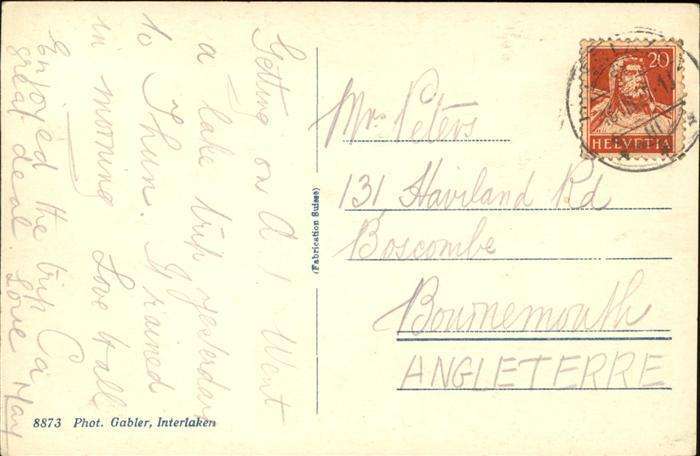 Getting on A.1 Went
a lake trip yesterday
to Thun. It rained
in morning Love to all
Enjoyed the trip
great deal. Love May
(Fabrication Suisse)
8873 Phot. Gabler, Interlaken
20
HELVETIA
Mrs Peters
131, Haviland Rd
Boscombe
Bournemouth
ANGLETERRE